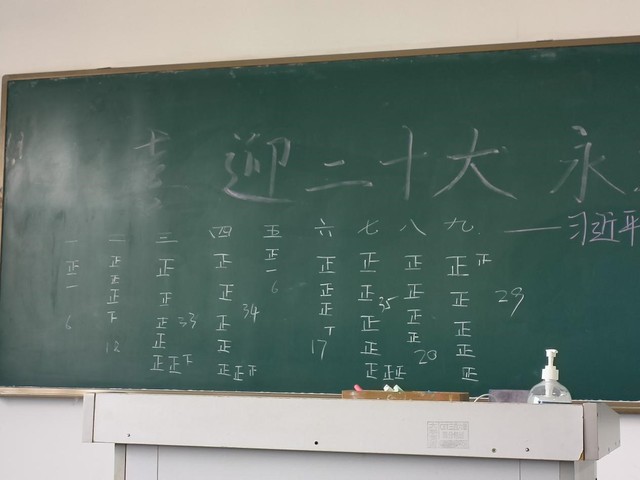 迎二十大 永
——习近平
一 二 三 四 五 六 七 八 九
正 正 正 正 正 正 正 正 正 正
一 正 正 正 一 正 正 正 正
6 正 正 正 6 正 正 正 正
下 33 34 下 35 正 29
正 正 17 正 20 正
正正下 正正正 正正正 正